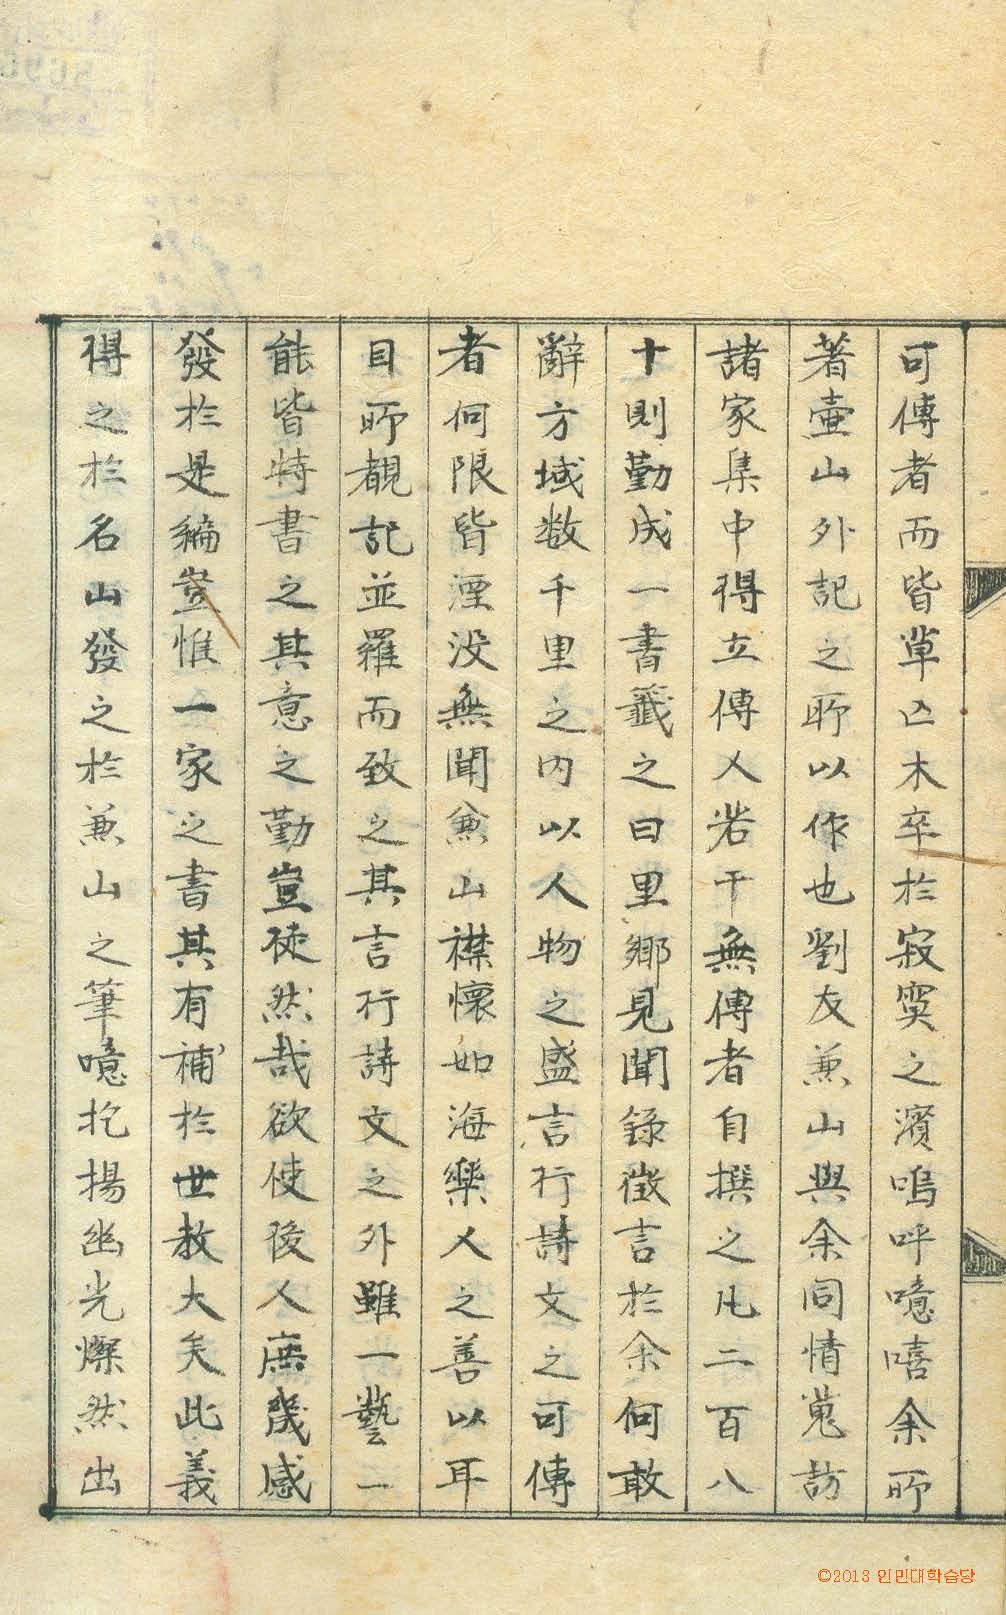 可傳者而皆草亡木卒於寂寞之濱嗚呼噫嘻余所
著壷山外記之所以作也劉友兼山與余同情蒐訪
諸家集中得立傳人若干無傳者自撰之凡二百八
十則勤成一書籤之曰里鄉見聞錄徵言於余何敢
辭方域数千里之內以人物之盛言行詩文之可傳
者何限皆湮没無聞兼山襟懷如海樂人之善以耳
目所覩記並羅而致之其言行詩文之外雖一藝一
能皆特書之其意之勤豈徒然哉欲使後人庶幾感
發於是編豈惟一家之書其有補於世教大矣此義
得之於名山發之於兼山之筆噫扢揚幽光燦然出
©2013 인민대학습당